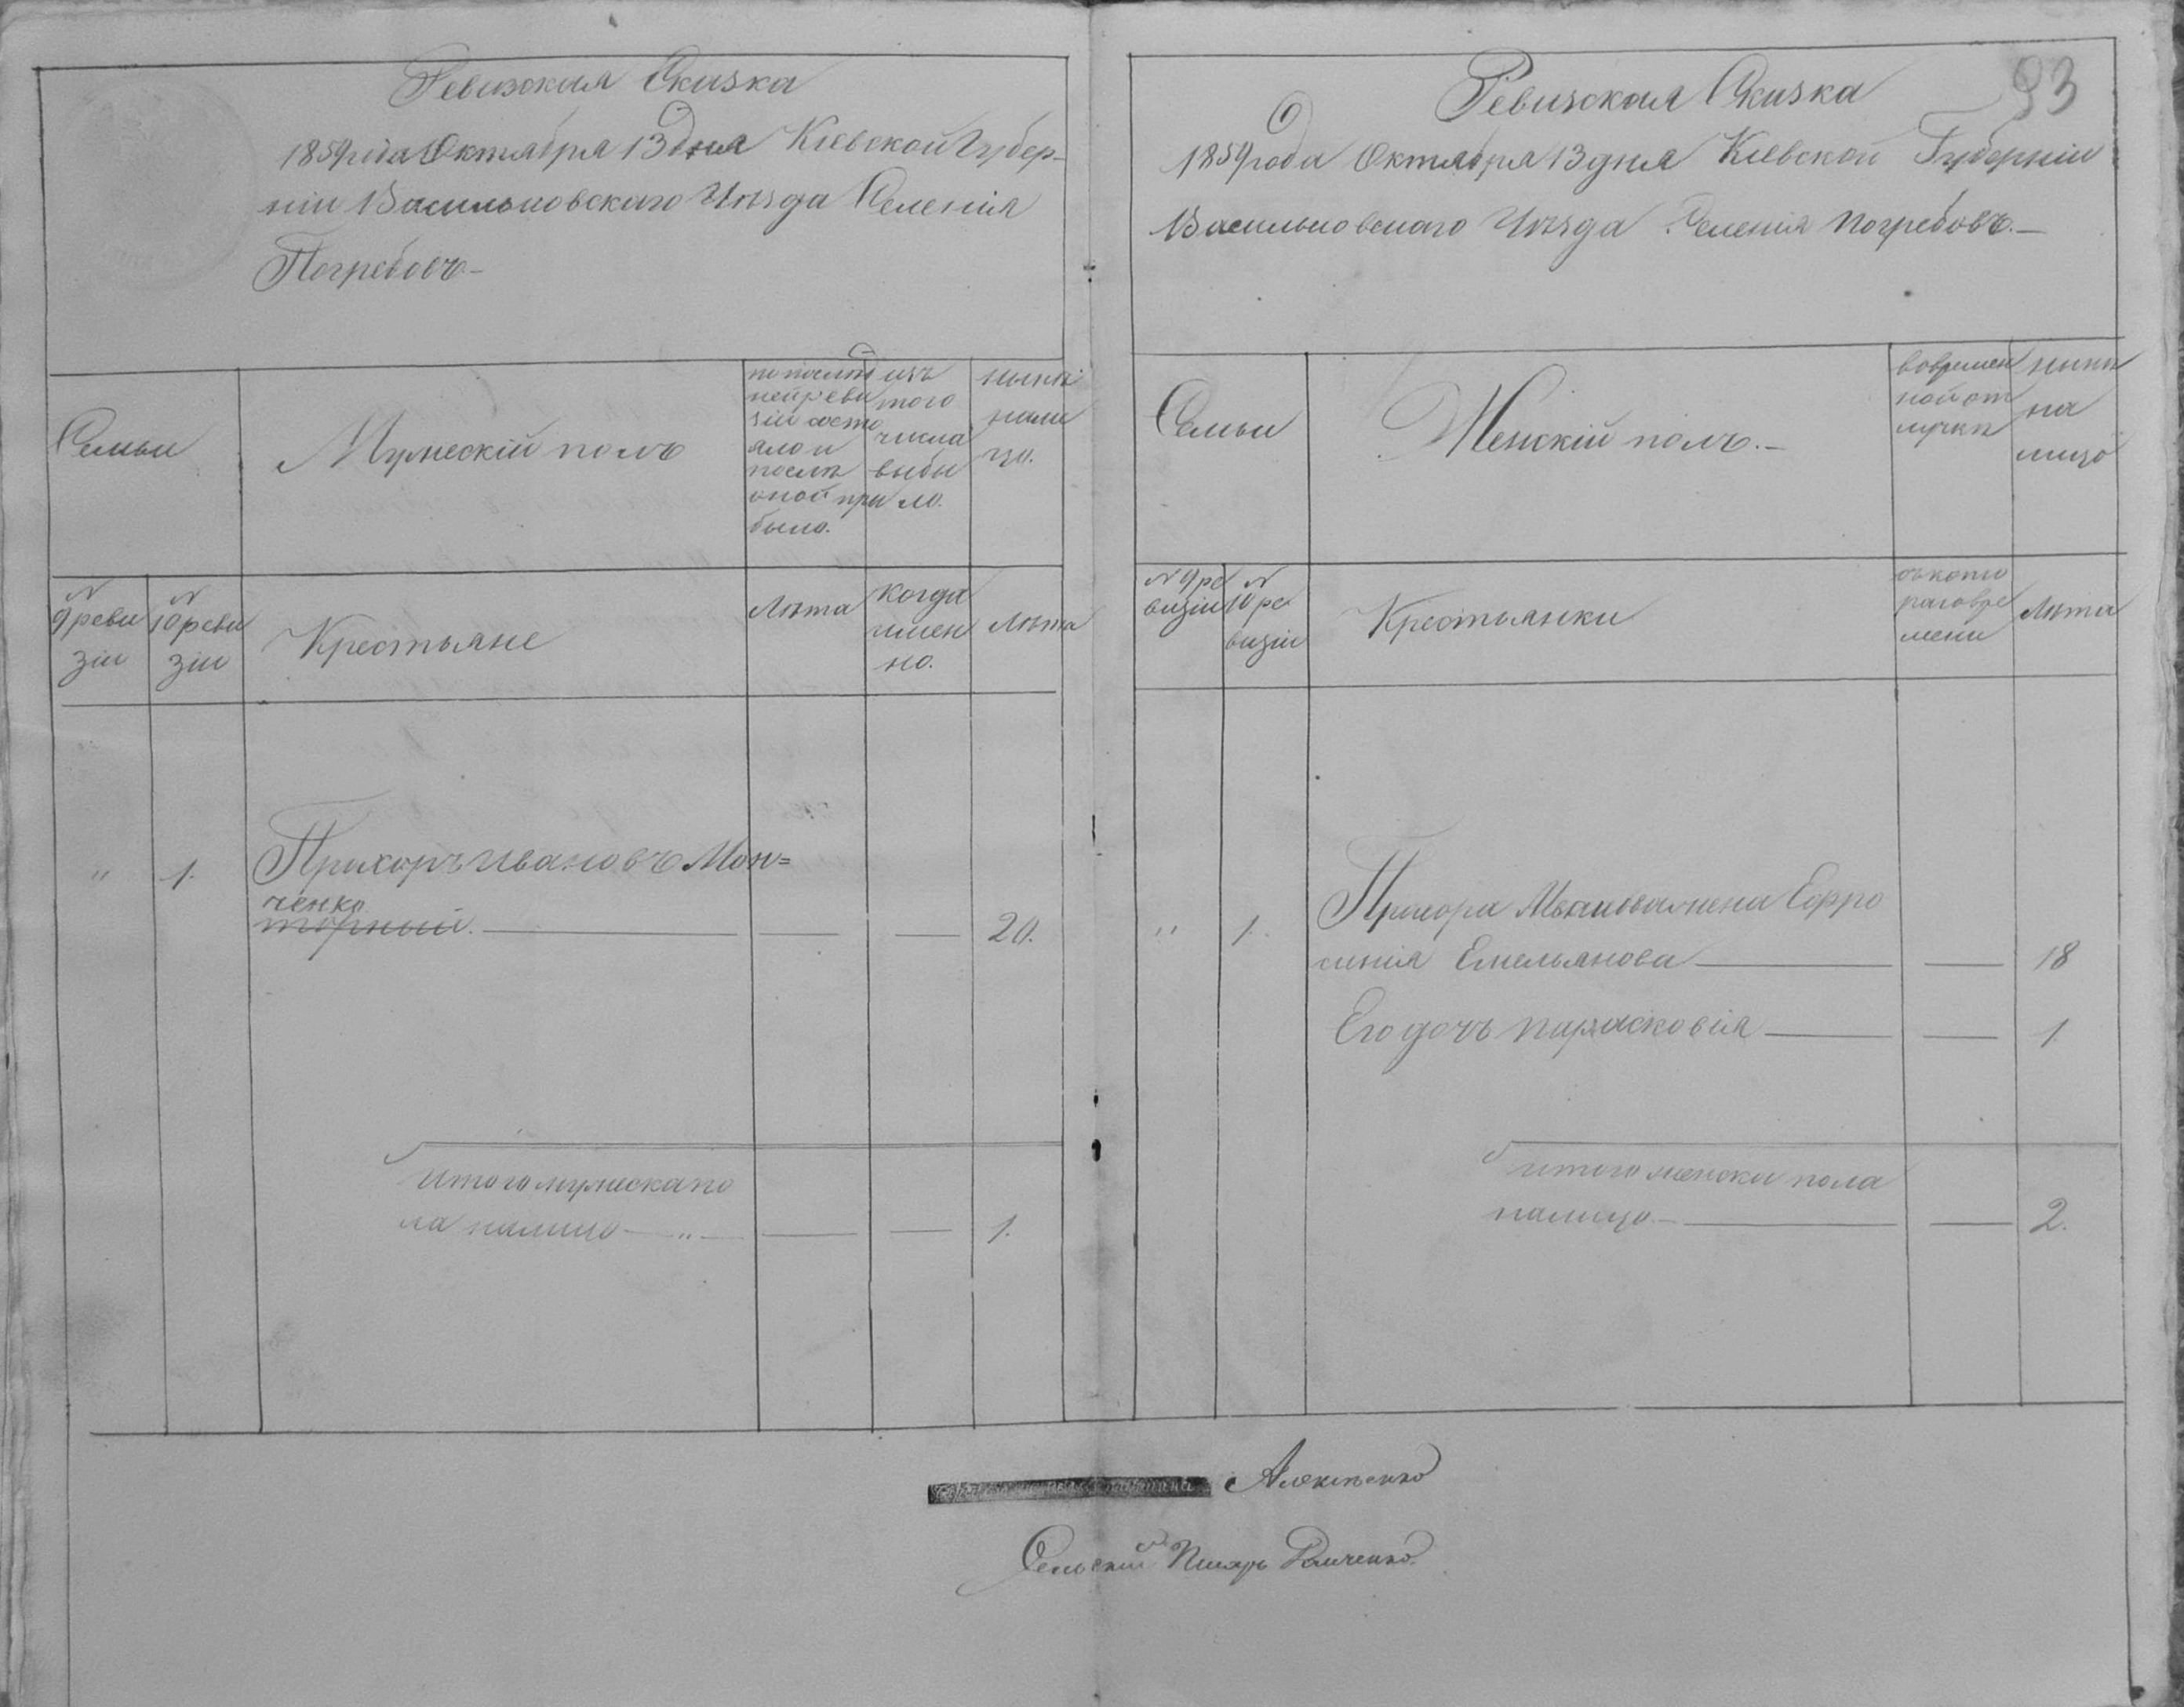 Ревизская Сказка
1859 года Октября 13 дня Кіевской Губер-
ніи Васильковскаго Уѣзда Селенія
Погребовъ-
Семьи
Мужескій полъ
по послѣд
ней реви
зіи состо
яло и
послѣ
оной при
было.
изъ
того
числа
выбы
ло.
нынѣ
нали
цо.
№
9 реви
зіи
№
10 реви
зіи
Крестьяне
Лѣта
когда
имен
но.
Лѣта
" 1. Прихоръ Ивановъ Мон=
ченко
торный. 20.
Итого мужеска по
ла налицо — " — 1.
93
Ревизская Сказка
1859 года Октября 13 дня Кіевской Губерніи
Васильковскаго Уѣзда Селенія Погребовъ.—
Семьи
Женскій полъ.—
вовремен
ной от
лучкѣ
нынѣ
на
лицо
№ 9 ре
визіи
№
10 ре
визіи
Крестьянки
съ кото
раго вре
мени
Лѣта
" 1. Прихора жена Ефро
синія Емельянова 18
Его дочь Парасковія 1
Итого женска пола
налицо.— 2.
Сельскій Писарь